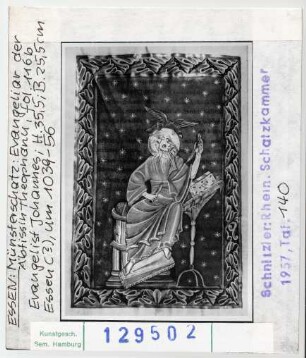 ESSEN: Münsterschatz: Evangeliar der
Äbtissin Theophanu, Fol. 116b
Evangelist Johannes, H. 35,5, B. 25,5 cm
Essen (?), um 1039-56
Schnitzler: Rhein. Schatzkammer
1957, Taf. 140
Kunstgesch.
Sem. Hamburg
129502